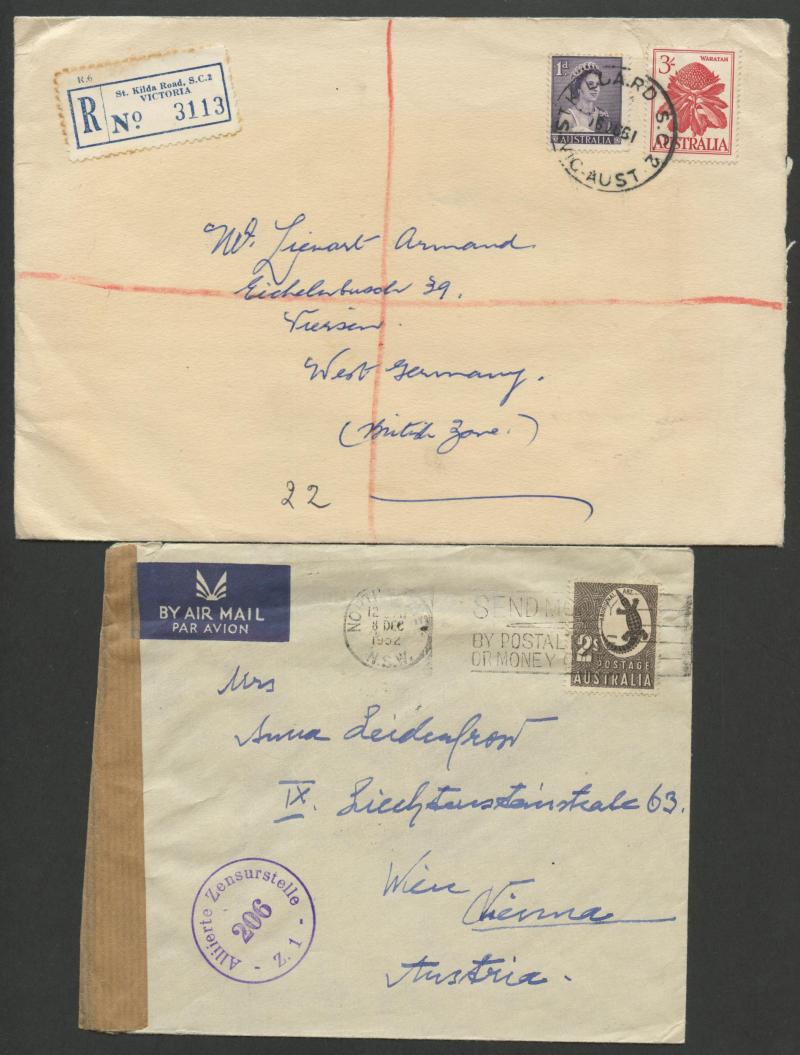 R.6
St. Kilda Road, S.C.2
VICTORIA
R No 3113
1d
AUSTRALIA
WARATAH
3/-
AUSTRALIA
ST. KILDA RD S.C.2
VIC-AUST.
Armand
39.
Viersen.
West Germany.
(British Zone.)
22
BY AIR MAIL
PAR AVION
8 DEC
1952
N.S.W.
SEND
BY POSTAL
OR MONEY
2s
POSTAGE
AUSTRALIA
Mrs
Anna Leidenfrost
IX. Liechtensteinstraße 63.
Wien
Vienna
Austria.
Alliierte Zensurstelle
206
- Z. 1 -